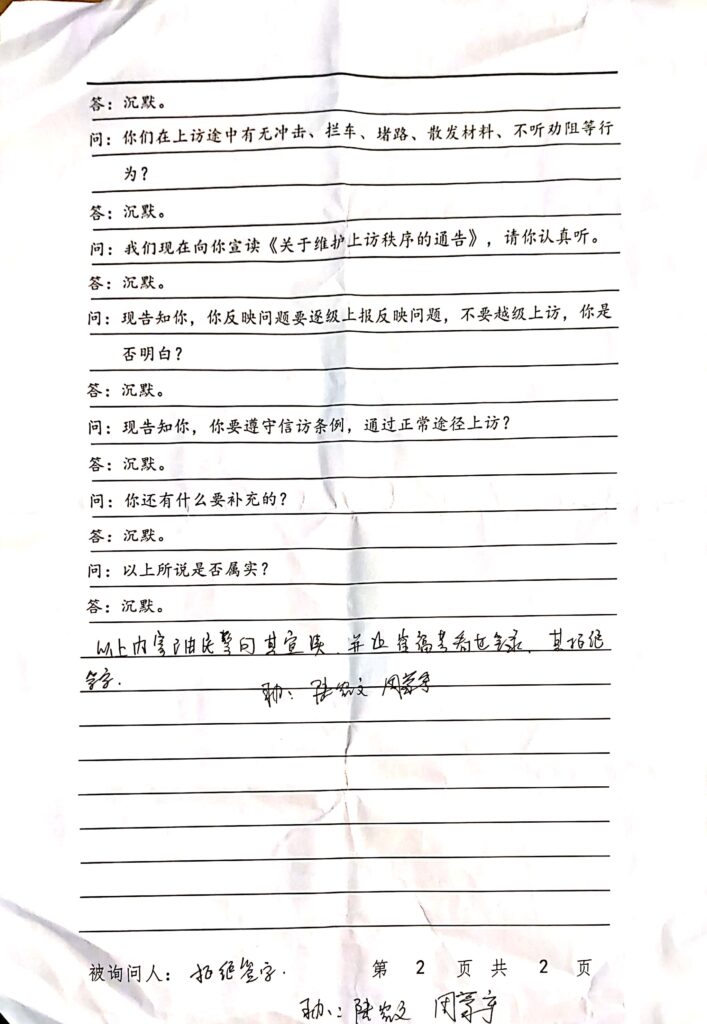 答：沉默。
问：你们在上访途中有无冲击、拦车、堵路、散发材料、不听劝阻等行
为？
答：沉默。
问：我们现在向你宣读《关于维护上访秩序的通告》，请你认真听。
答：沉默。
问：现告知你，你反映问题要逐级上报反映问题，不要越级上访，你是
否明白？
答：沉默。
问：现告知你，你要遵守信访条例，通过正常途径上访？
答：沉默。
问：你还有什么要补充的？
答：沉默。
问：以上所说是否属实？
答：沉默。
以上内容由民警向其宣读，并让崔福芳看过笔录，其拒绝
签字.
被询问人：拒绝签字.
第 2 页 共 2 页